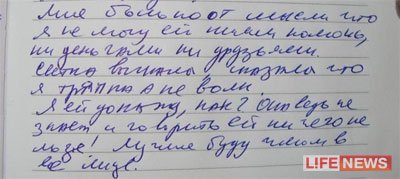 Мне больно от мысли что
я не могу ей ничем помочь,
ни деньгами ни друзьями.
сказала что
я тряпка а не волк.
Я ей докажу, как? Она ведь не
знает и говорить ей ничего не
льзя! Лучше буду чмом в
её лице.
LIFENEWS